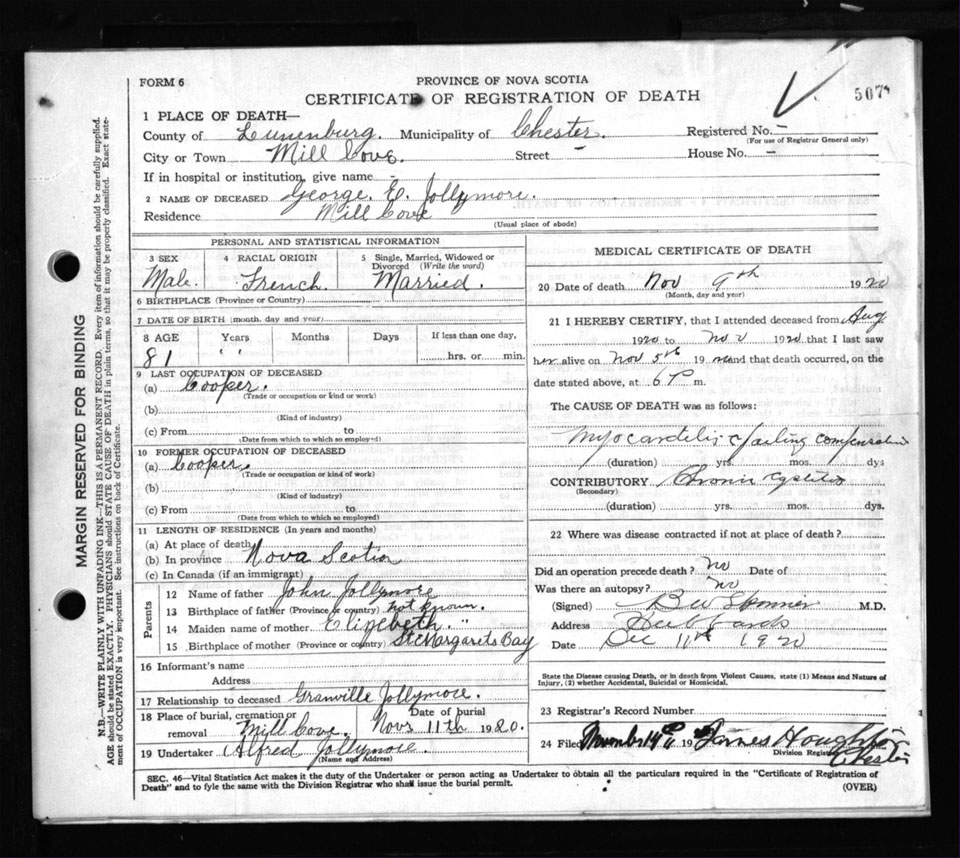 FORM 6
PROVINCE OF NOVA SCOTIA
CERTIFICATE OF REGISTRATION OF DEATH
507
1 PLACE OF DEATH—
County of Lunenburg. Municipality of Chester. Registered No. –
(For use of Registrar General only)
City or Town Mill Cove. Street – House No. –
If in hospital or institution, give name –
2 NAME OF DECEASED George. E. Jollymore.
Residence Mill Cove
(Usual place of abode)
MARGIN RESERVED FOR BINDING
N.B.—WRITE PLAINLY WITH UNFADING INK—THIS IS A PERMANENT RECORD. Every item of information should be carefully supplied.
AGE should be stated EXACTLY. PHYSICIANS should STATE CAUSE OF DEATH in plain terms, so that it may be properly classified. Exact statement of OCCUPATION is very important. See instructions on back of Certificate.
PERSONAL AND STATISTICAL INFORMATION
3 SEX 4 RACIAL ORIGIN 5 Single, Married, Widowed or Divorced (Write the word)
Male. French. Married.
6 BIRTHPLACE (Province or Country)
7 DATE OF BIRTH (month, day and year)
8 AGE Years Months Days If less than one day,
81 " " hrs. or min.
9 LAST OCCUPATION OF DECEASED
(a) Cooper.
(Trade or occupation or kind or work)
(b)
(Kind of industry)
(c) From to
(Date from which to which so employed)
10 FORMER OCCUPATION OF DECEASED
(a) Cooper.
(Trade or occupation or kind of work)
(b)
(Kind of industry)
(c) From to
(Date from which to which so employed)
11 LENGTH OF RESIDENCE (In years and months)
(a) At place of death
(b) In province Nova Scotia
(c) In Canada (if an immigrant)
Parents
12 Name of father John Jollymore
13 Birthplace of father (Province or country) not known.
14 Maiden name of mother Elizebeth. "
15 Birthplace of mother (Province or country) St Margarets Bay
16 Informant's name
Address
17 Relationship to deceased Granville Jollymore.
18 Place of burial, cremation or removal Mill Cove. Date of burial Novr 11th 1920.
19 Undertaker Alfred Jollymore.
(Name and Address)
MEDICAL CERTIFICATE OF DEATH
20 Date of death Nov 9th 1920
(Month, day and year)
21 I HEREBY CERTIFY, that I attended deceased from Aug
1920 to Nov 1920 that I last saw
her alive on Nov 5th 19 and that death occurred, on the
date stated above, at 6 P m.
The CAUSE OF DEATH was as follows:
Myocarditis failing compensation
(duration) yrs. mos. dys
CONTRIBUTORY Chronic cystitis
(Secondary)
(duration) yrs. mos. dys.
22 Where was disease contracted if not at place of death?
Did an operation precede death? No Date of
Was there an autopsy? No
(Signed) M.D.
Address Hubbards
Date Dec 11th 1920
State the Disease causing Death, or in death from Violent Causes, state (1) Means and Nature of Injury, (2) whether Accidental, Suicidal or Homicidal.
23 Registrar's Record Number
24 Filed November 14 19 James Houghton
Division Registrar
Chester
SEC. 46—Vital Statistics Act makes it the duty of the Undertaker or person acting as Undertaker to obtain all the particulars required in the "Certificate of Registration of
Death" and to fyle the same with the Division Registrar who shall issue the burial permit.
(OVER)